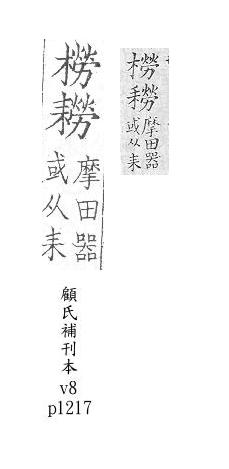 橯耮
摩田器
或从耒
顧氏補刊本
v8
p1217
橯耮
摩田器
或从耒